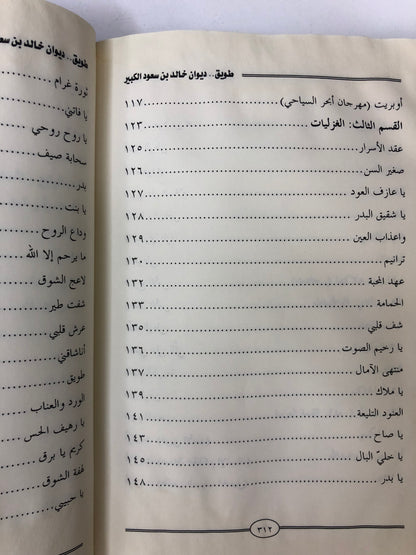 طويق.. ديوان خالد بن سعود الكبير
أوبريت (مهرجان أبحر السياحي) ١١٧
القسم الثالث: الغزليات ١٢٣
عقد الأسرار ١٢٥
صغير السن ١٢٦
يا عازف العود ١٢٧
يا شقيق البدر ١٢٨
واعذاب العين ١٢٩
ترانيم ١٣٠
عهد المحبة ١٣٢
الحمامة ١٣٣
شف قلبي ١٣٥
يا رخيم الصوت ١٣٦
منتهى الآمال ١٣٧
يا ملاك ١٣٩
العنود التليعة ١٤١
يا صاح ١٤٣
يا خليّ البال ١٤٥
يا بدر ١٤٨
٣١٢
طويق.. ديوان خالد بن سعو
ثورة غرام
يا فاتني
يا روح روحي
سحابة صيف
بدر
يا بنت
وداع الروح
ما يرحم إلا الله
لاعج الشوق
شفت طير
عرش قلبي
أناشاقني
طويق
الورد والعناب
يا رهيف الحس
كريم يا برق
لهفة الشوق
يا حبيبي